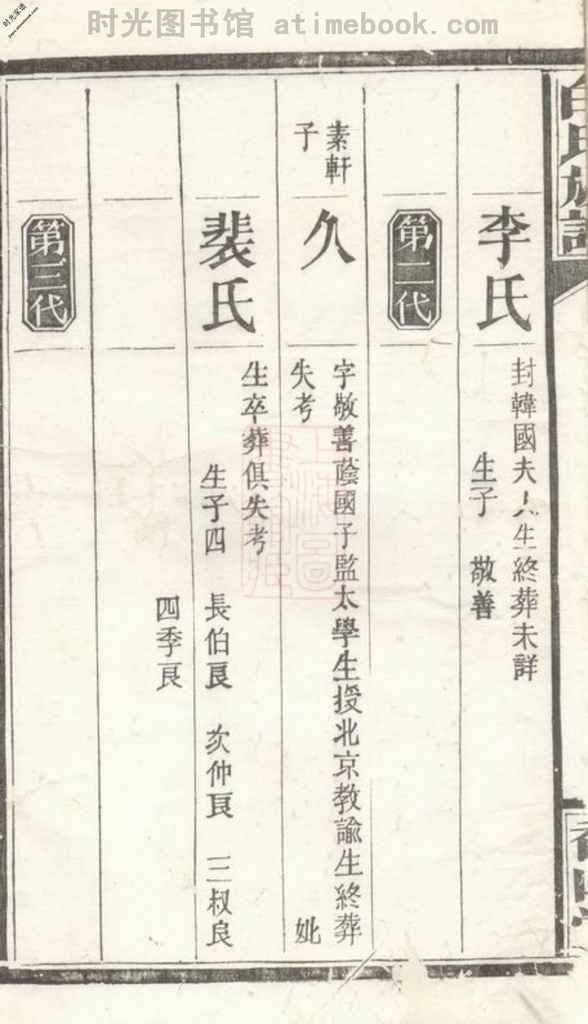 时光图书馆 - atimebook.com
白氏族譜
李氏
封韓國夫人生終葬未詳
生子 敬善
第二代
素軒
子
久
字敬善蔭國子監太學生授北京教諭生終葬
失考 妣
裴氏
生卒葬俱失考
生子四 長伯良 次仲良 三叔良
四季良
第三代